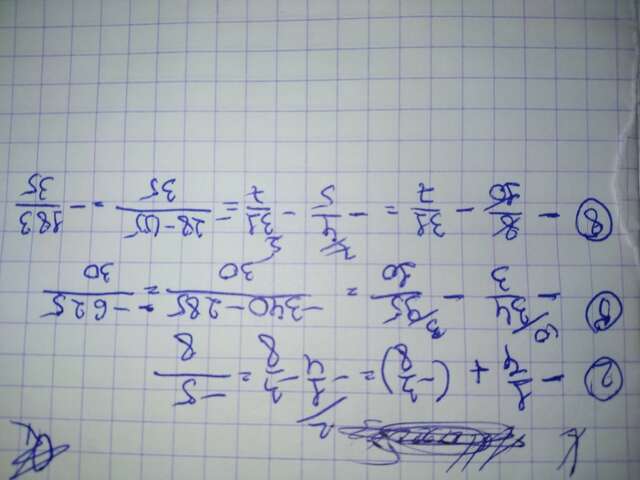 ② - 1/4 + (-3/8) = - 1/4 - 3/8 = -5/8
- 34/3 - 95/10 = -340-285/30 = -625/30
⑧ - 8/10 - 31/7 = - 4/5 - 31/7 = -28-155/35 = - 183/35